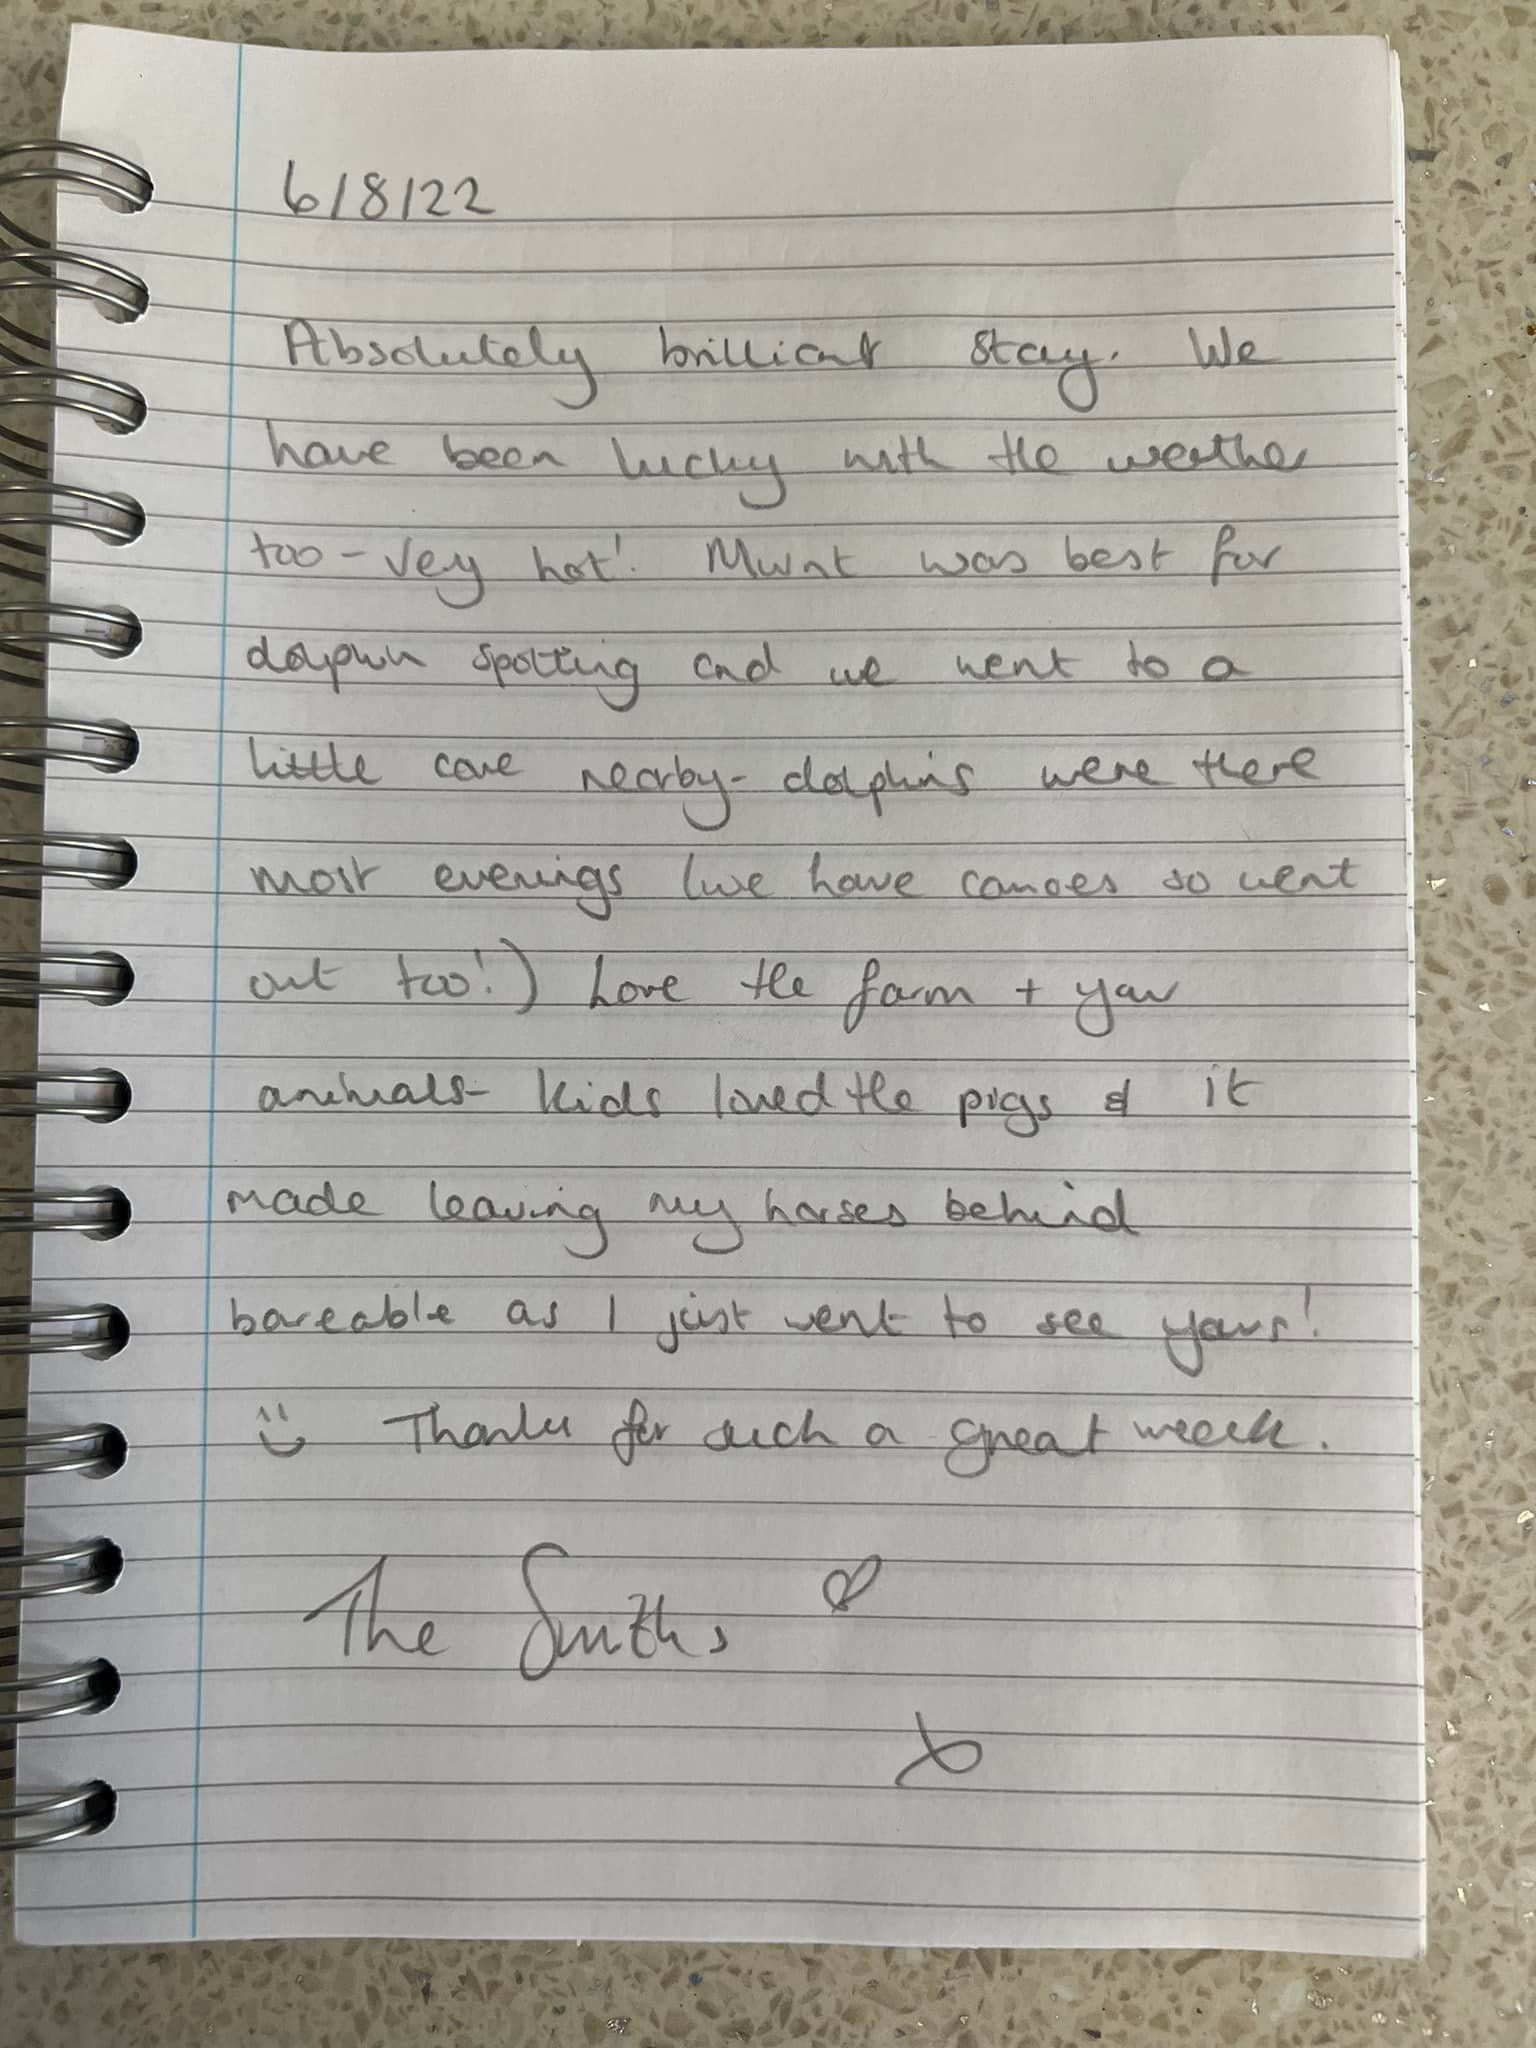 6/8/22
Absolutely brilliant stay. We
have been lucky with the weather
too - very hot! Mwnt was best for
dolphin spotting and we went to a
little cove nearby - dolphins were there
most evenings (we have canoes so went
out too!) Love the farm + your
animals - kids loved the pigs & it
made leaving my horses behind
bareable as I just went to see yours!
Thanks for such a great week.
The Smiths
x